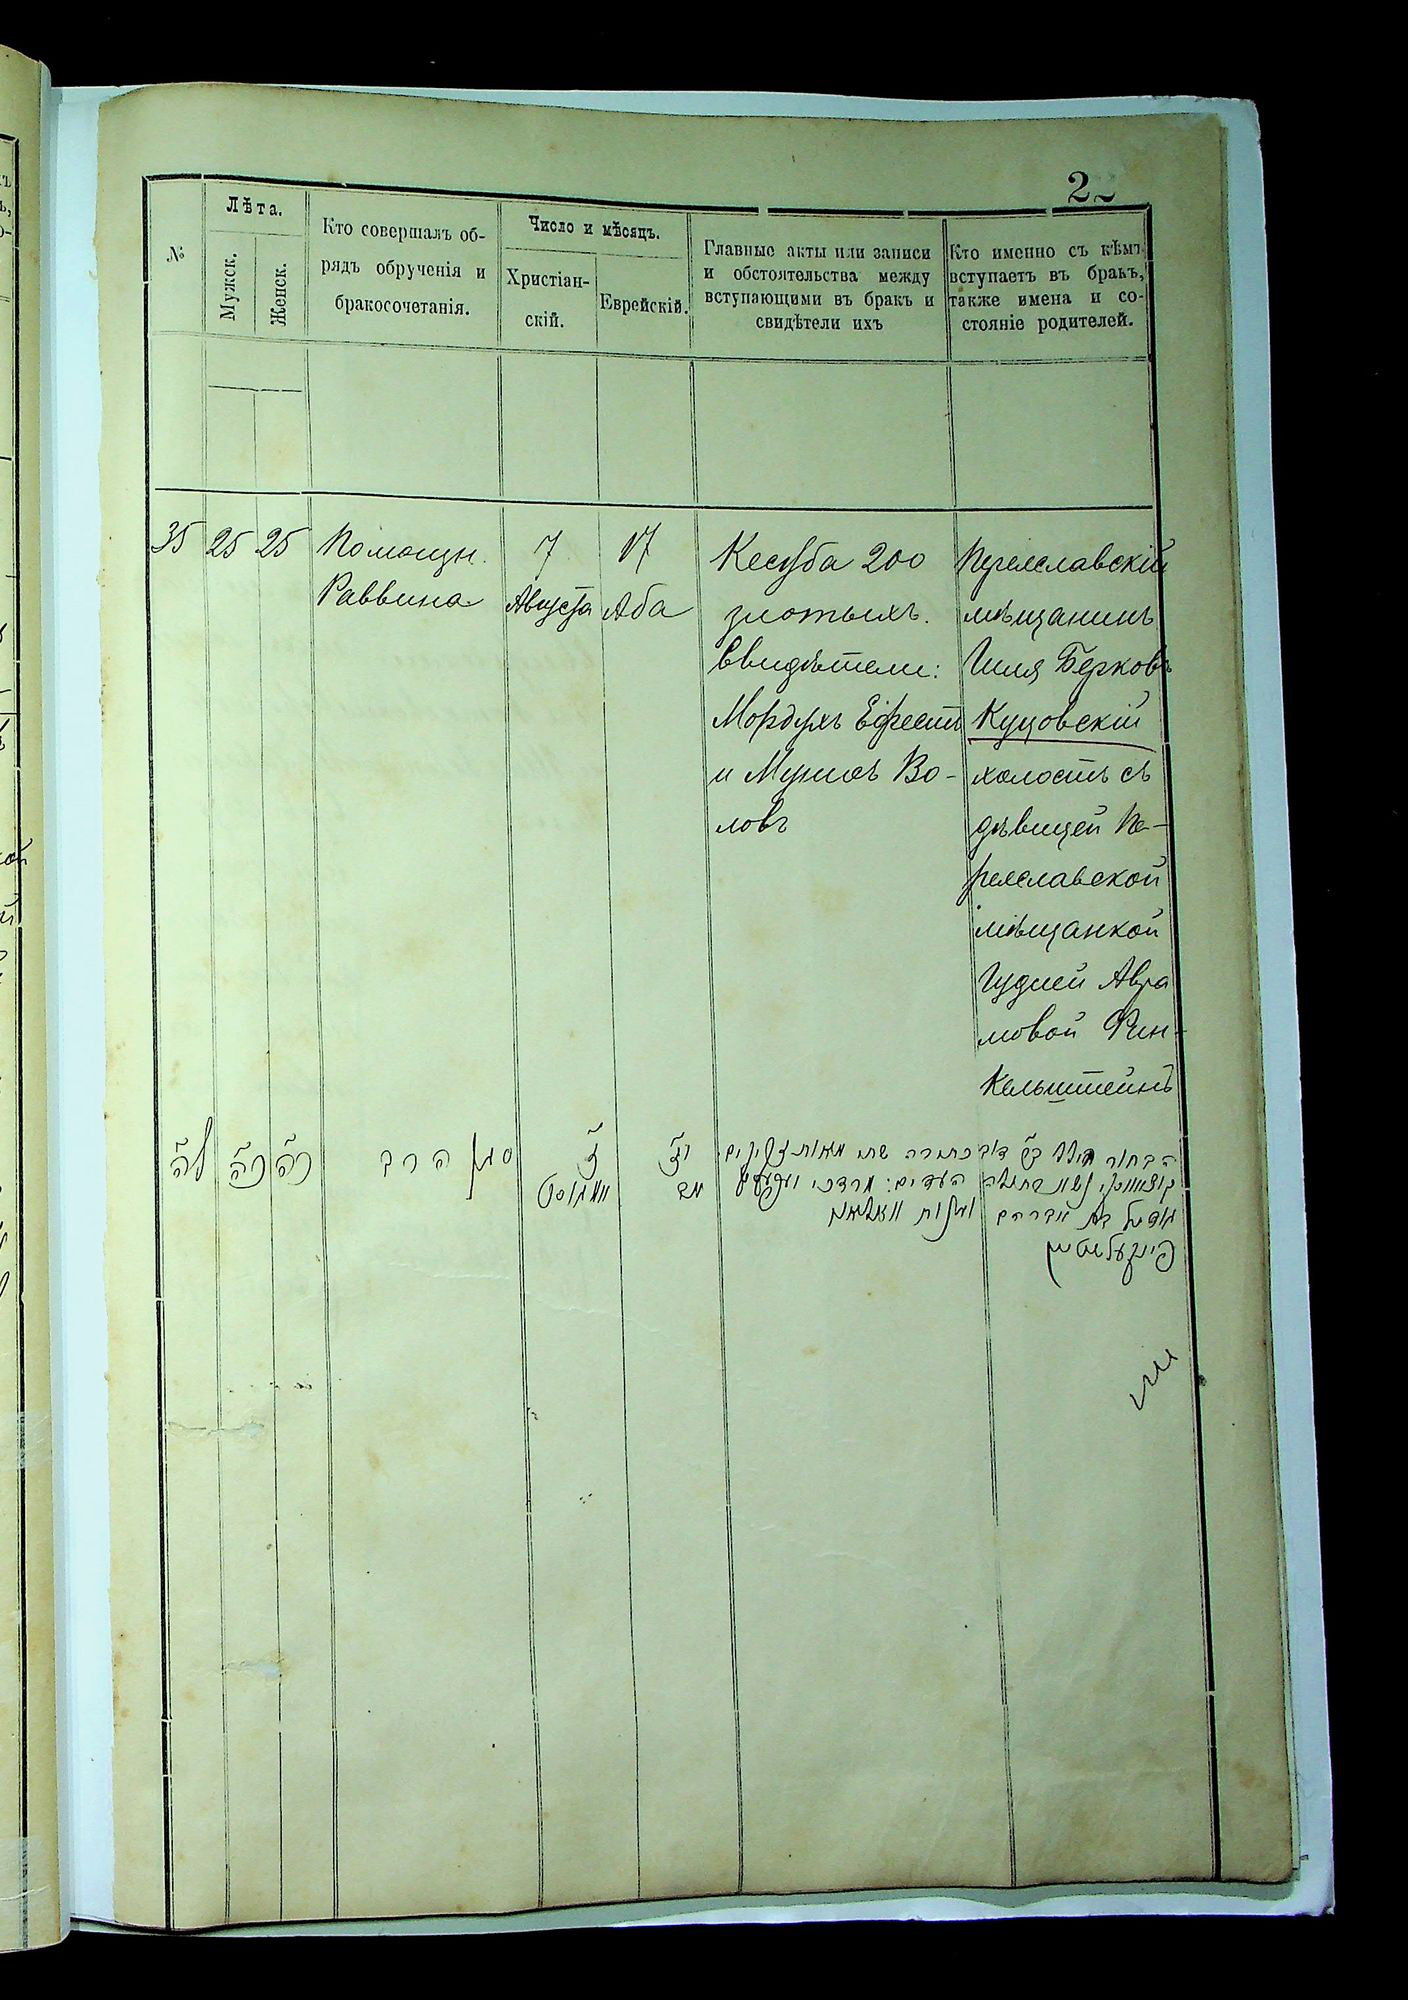 2
№
Лѣта.
Мужск.
Женск.
Кто совершалъ об-
рядъ обрученія и
бракосочетанія.
Число и мѣсяцъ.
Христіан-
скій.
Еврейскій.
Главные акты или записи
и обстоятельства между
вступающими въ бракъ и
свидѣтели ихъ
Кто именно съ кѣмъ
вступаетъ въ бракъ,
также имена и со-
стояніе родителей.
35
25
25
Помощн.
Раввина
7
Августа
17
Аба
Кесуба 200
злотыхъ.
Свидѣтели:
Мордухъ
и Во-
ловъ
Переяславскій
мѣщанинъ
Гиля Берковъ
Куцовскій
холостъ съ
дѣвицей Пе-
реяславской
мѣщанкой
Авра
мовой Фин-
кельштейнъ
לה
כה
כה
הרב
ז
אויגוסט
יז
אב
הבחור דוב
בת אברהם
פינקעלשטיין
שתי מאות
העדים: מרדכי